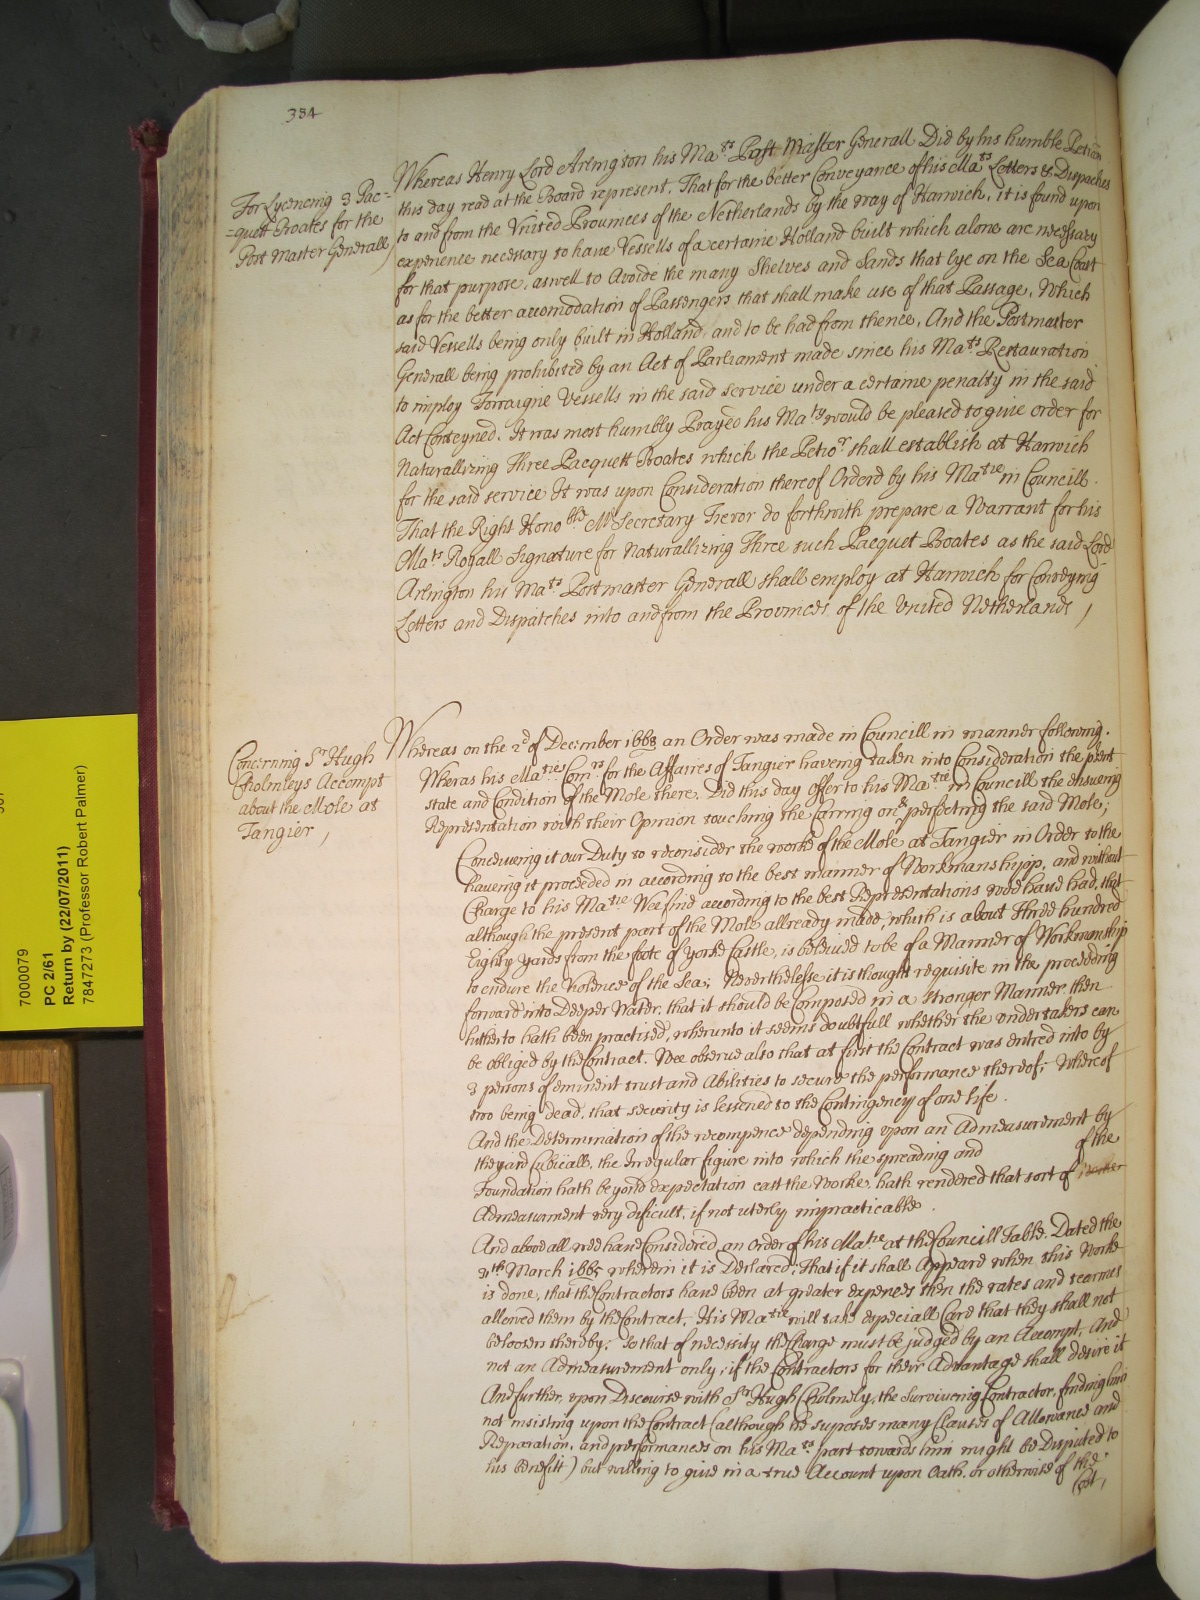 334
For Lycencing 3 Pac-
=quett Boates for the
Post Master Generall,
Whereas Henry Lord Arlington his Ma.ts Post Master Generall Did by his humble Peticon
this day read at the Board represent, That for the better Conveyance of his Ma.ts Letters & Dispaches
to and from the United Provinces of the Netherlands by the way of Harwich, it is found upon
experience necessary to have Vessells of a certaine Holland built which alone are necessary
for that purpose, aswell to Avoide the many Shelves and Sands that lye on the Sea Coast
as for the better accomodation of Passengers that shall make use of that Passage, Which
said Vessells being only built in Holland, and to be had from thence, And the Postmaster
Generall being prohibited by an Act of Parliament made since his Ma.ts Restauration
to imploy Forraigne Vessells in the said service under a certaine penalty in the said
Act Conteyned. It was most humbly Prayed his Ma.ty would be pleased to give order for
Naturallizing Three Pacquett Boates which the Petio.r shall establish at Harwich
for the said service It was upon Consideration thereof Orderd by his Ma.tie in Councill.
That the Right Hono.ble M.r Secretary Trevor do forthwith prepare a Warrant for his
Ma.ts Royall Signature for Naturallizing Three such Pacquet Boates as the said Lord
Arlington his Ma.ts Postmaster Generall shall employ at Harwich for Conveying
Letters and Dispatches into and from the Provinces of the United Netherlands,
Concerning S.r Hugh
Cholmleys Accompt
about the Mole at
Tangier,
Whereas on the 2.d of December 1668 an Order was made in Councill in manner following.
Wheras his Ma.ties Com.rs for the Affaires of Tangier haveing taken into Consideration the p'sent
state and Condition of the Mole there, Did this day offer to his Ma.tie in Councill the ensueing
Representation with their Opinion touching the Carring on & perfecting the said Mole;
Conceiveing it our Duty to reconsider the worke of the Mole at Tangier in Order to the
haveing it proceeded in according to the best manner of Workmanshipp, and without
Charge to his Ma.tie Wee find according to the best Representations wee have had, that
although the present part of the Mole allready made, which is about Three hundred
Eighty yards from the foote of Yorke Castle, is beleived to be of a Manner of Workmanship
to endure the Violence of the Sea; Neverthelesse it is thought requisite in the proceeding
forward into Deeper Water, that it should be Composed in a stronger Manner then
hitherto hath been practised, wherunto it seems doubtfull whether the undertakers can
be obliged by the Contract. Wee observe also that at first the Contract was entred into by
3 persons of eminent trust and Abilities to secure the performance thereof; Whereof
two being dead, that security is lessened to the Contingency of one life.
And the Determination of the recompence depending upon an Admeasurement by
the yard Cubicall, the Irregular figure into which the spreading and of the
Foundation hath beyond expectation cast the Worke, hath rendered that sort of
Admeasurment very dificult, if not uterly impracticable.
And above all wee have Considered an Order of his Ma.tie at the Councill Table, Dated the
31th March 1665 wherein it is Declared, That if it shall Appeare when this Worke
is done, that the Contractors have been at greater expences then the rates and tearmes
allowed them by the Contract, His Ma.tie will take especiall Care that they shall not
be loosers thereby; So that of necessity the Charge must be judged by an Accompt, And
not an Admeasurement only; if the Contractors for their Advantage shall desire it
And further, upon Discourse with S.r Hugh Cholmely, the Surviveing Contractor, finding him
not insisting upon the Contract (although he suposes many Clauses of Allowance and
Reparation, and performances on his Ma.ts part towards him might be Disputed to
his benefitt) but willing to give in a true Account upon Oath, or otherwise of the
Cost,
7000079
PC 2/61
Return by (22/07/2011)
7847273 (Professor Robert Palmer)